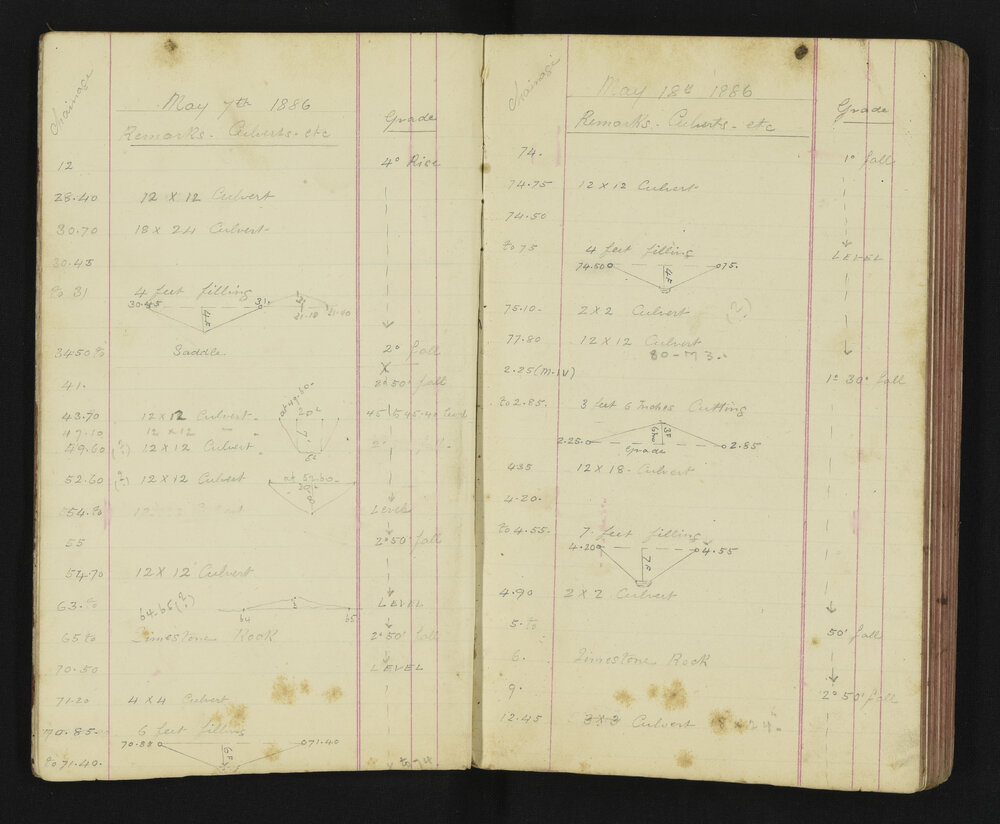 Chainage
May 7th 1886
Remarks. Culverts. etc
Grade
12 4° Rise
28.40 12 X 12 Culvert
30.70 18 X 24 Culvert
30.45
to 31 4 feet filling
30.45 31.
4F
31.40
3450 to Saddle 2° fall
X
41. 2° 50' fall
at 49.50.
43.70 12 X 12 Culvert
47.10 12 X 12
49.60 (?) 12 X 12 Culvert
7'
52.60 (?) 12 X 12 Culvert
at 52.60
54. to Level
55 2° 50' fall
54.70 12 X 12 Culvert
63. to 64-65 (?) LEVEL
64 65
65 to Limestone Rock 2° 50' fall
70.50 LEVEL
71.20 4 X 4 Culvert
70.85. 6 feet filling
70.85 71.40
6F
to 71.40.
Chainage
May 18th 1886
Remarks. Culverts. etc
Grade
74. 1° fall
74.75 12 X 12 Culvert
74.50
to 75 4 feet filling LEVEL
74.50 75.
4F
75.10. 2 X 2 Culvert (?)
77.80 12 X 12 Culvert
80-M 3.
2.25 (M.IV) 1° 30' fall
to 2.85. 3 feet 6 Inches Cutting
2.25 2.85
Grade
435 12 X 18 Culvert
4.20.
to 4.55. 7 feet filling
4.20 4.55
7F
4.90 2 X 2 Culvert
5. to 50' fall
6. Limestone Rock
9. 2° 50' fall
12.45 3 X 3 Culvert